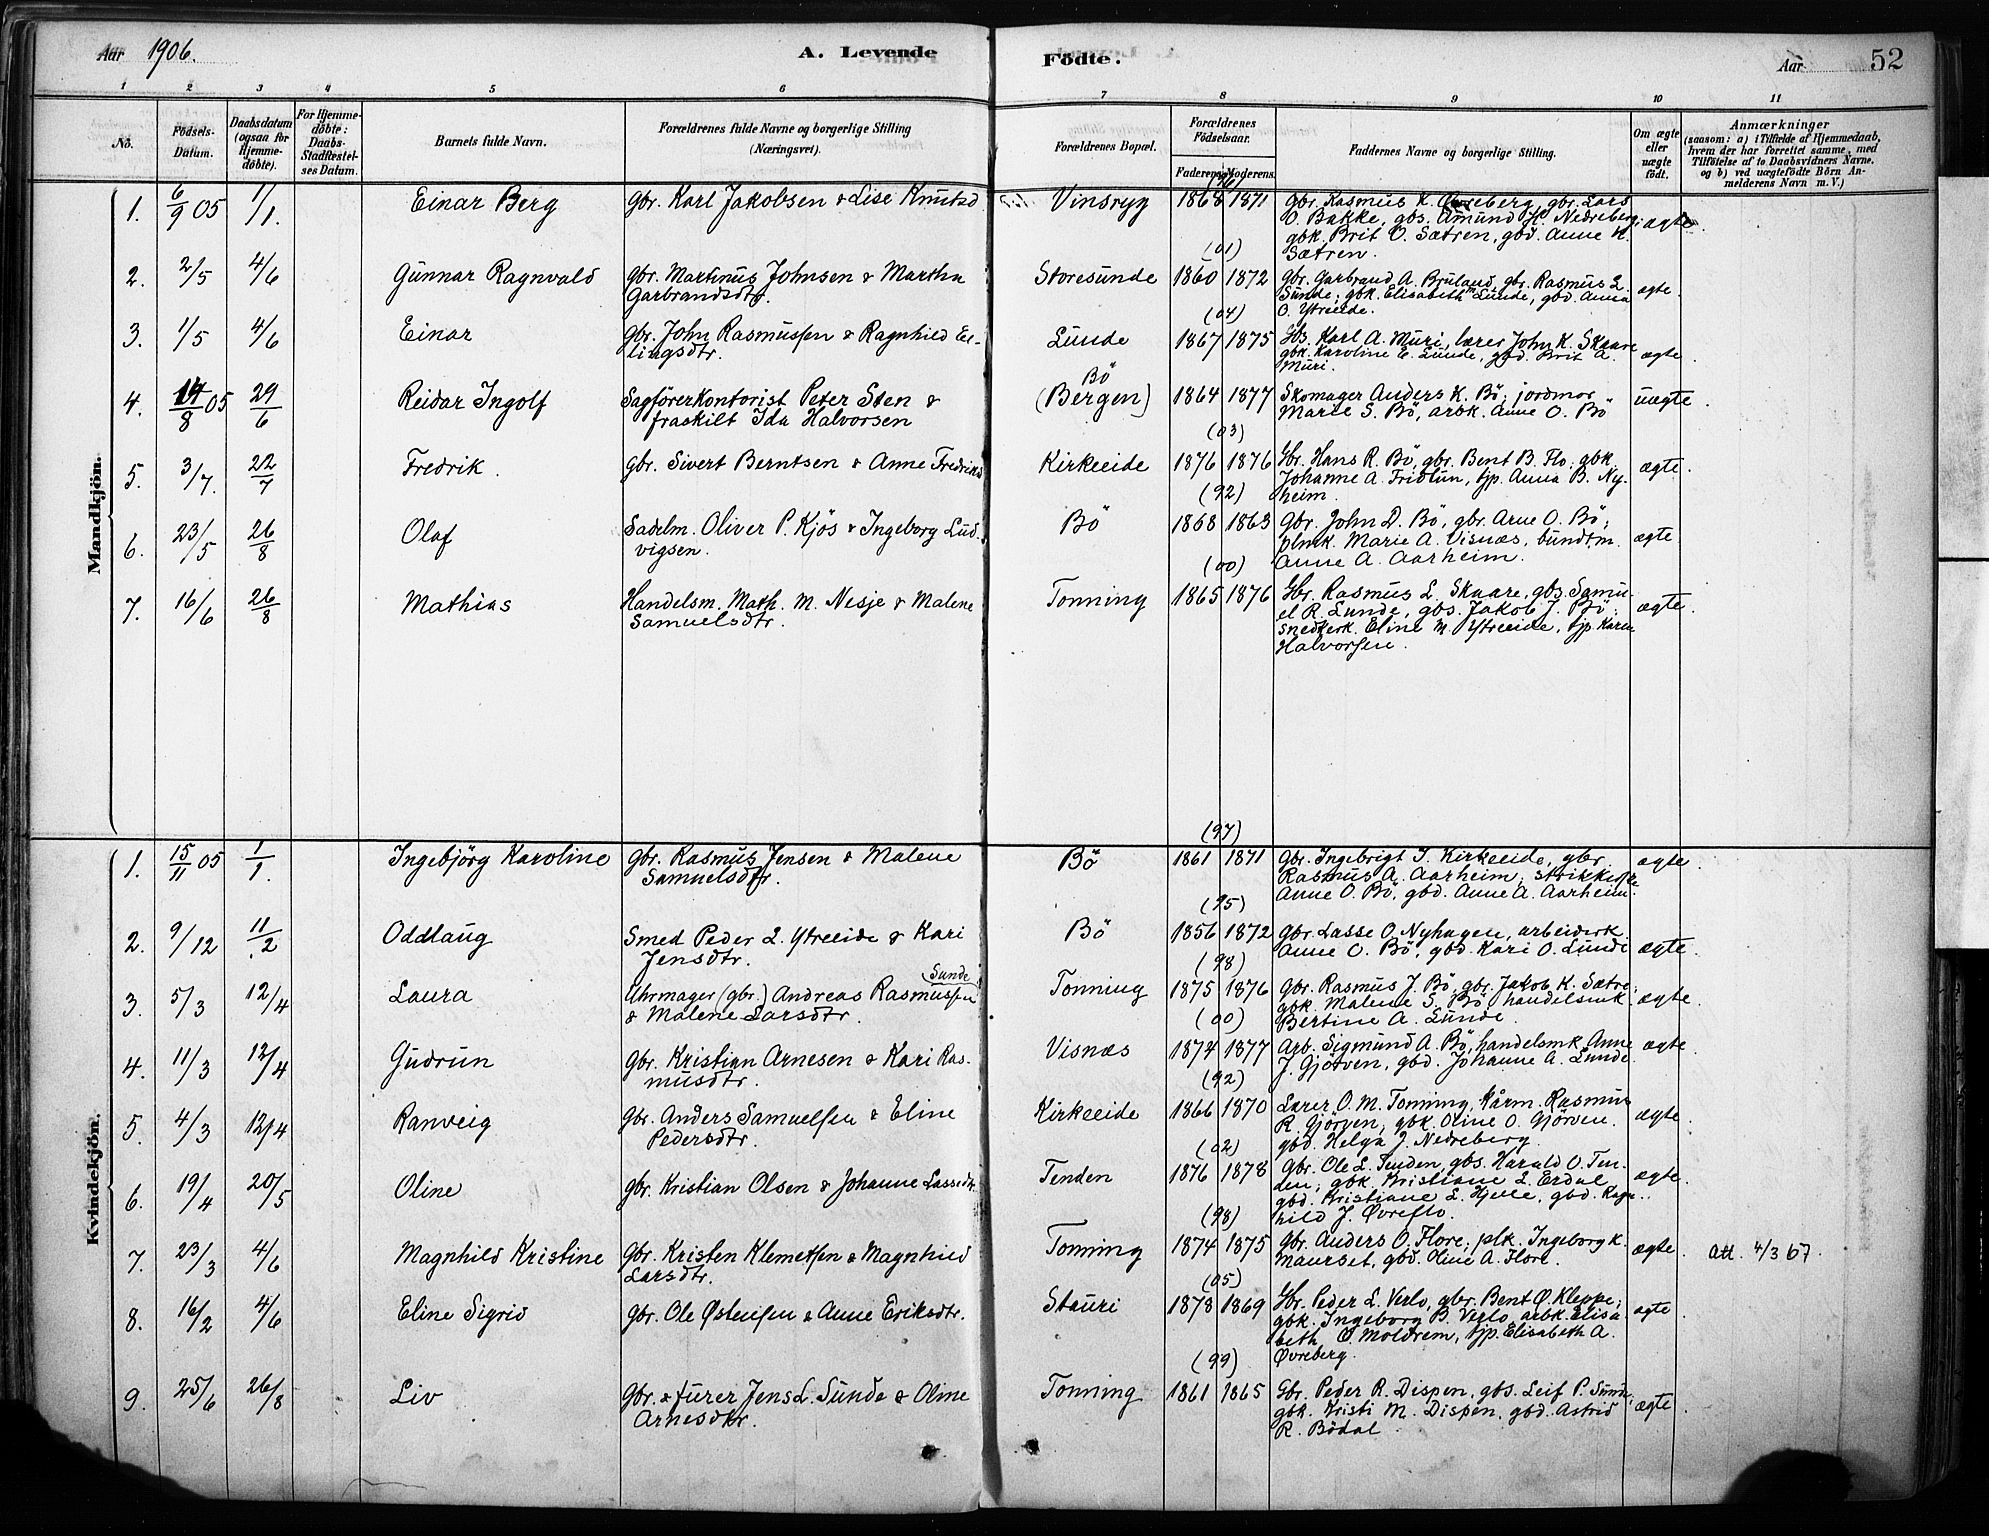 Aar 1906.
A. Levende Födte.
Aar 52
1 2 3 4 5 6 7 8 9 10 11
No.
Födsels-Datum.
Daabsdatum (ogsaa for Hjemme-döbte).
For Hjemme-döbte: Daabs-Stadfæstel-ses Datum.
Barnets fulde Navn.
Forældrenes fulde Navne og borgerlige Stilling (Næringsvei).
Forældrenes Bopæl.
Forældrenes Födselsaar.
Faderens. Moderens.
Faddernes Navne og borgerlige Stilling.
Om ægte eller uægte födt.
Anmærkninger (saasom: a) i Tilfælde af Hjemmedaab, hvem der har forrettet samme, med Tilföielse af to Daabsvidners Navne. og b) ved uægtefödte Börn An-melderens Navn m. V.)
Mandkjön.
1. 6/9 05 1/1. Einar Berg Gbr. Karl Jakobsen & Lise Knutsd Vinsryg (96) 1868 1871 Gbr. Rasmus K. Øvreberg, gbr. Lars
O. Bakke, gbs. Amund H. Nedreberg; ægte.
gbk. Brit O. Sætren, gbd. Anne K.
Sætren.
2. 2/5 4/6 Gunnar Ragnvald Gbr. Martinus Johnsen & Martha Storesunde (01) 1860 1872 Gbr. Garbrand A. Bruland, gbr. Rasmus L.
Garbrandsdtr. Sunde; gbk. Elisabeth Sunde, gbd. Anna ægte.
O. Ytreeide.
3. 1/5 4/6 Einar Gbr. John Rasmussen & Ragnhild Er- Lunde (04) 1867 1875 Gbs. Karl A. Muri, lærer John K. Skaare
lingsdtr. gbk. Karoline E. Lunde, gbd. Brit A. ægte.
Muri.
4. 14/8 05 29/6 Reidar Ingolf Sagförerkontorist Peter Steen & Bö (Bergen) 1864 1877 Skomager Anders K. Bö; jordmor uægte.
fraskilt Ida Halvorsen Marie S. Bö, arbk. Anne O. Bö
5. 3/7. 22/7 Fredrik. Gbr. Sivert Berntsen & Anne Fredriksd Kirkeeide (03) 1876 1876 Gbr. Hans R. Bö, gbr. Bent B. Flo; gbk. ægte.
Johanne A. Fridtun, tjp. Anna B. Ny-
heim.
6. 23/5 26/8 Olaf Sadelm. Oliver P. Kjös & Ingeborg Lud- Bö (92) 1868 1863 Gbr. John D. Bö, gbr. Arne O. Bö;
vigsen. Marie A. Visnæs, bundtm. ægte
Anne A. Aarheim.
7. 16/6 26/8 Mathias Handelsm. Math. M. Nesje & Malene Tonning (00) 1865 1876 Gbr. Rasmus L. Skaare, gbs. Samu-
Samuelsdtr. el R. Lunde, gbs. Jakob J. Bö; ægte.
snedkerk. Eline M. Ytreeide, tjp. Karen
Halvorsen.
Kvindekjön.
1. 15/11 05 1/1. Ingebjörg Karoline Gbr. Rasmus Jensen & Malene Bö (97) 1861 1871 Gbr. Ingebrigt I. Kirkeeide, gbr. ægte.
Samuelsdtr. Rasmus A. Aarheim;
Anne O. Bö, gbd. Anne A. Aarheim.
2. 9/12 11/2 Oddlaug Smed Peder L. Ytreeide & Kari Bö (95) 1856 1872 Gbr. Lasse O. Nyhagen, arbeiderk.
Jensdtr. Anne O. Bö, gbd. Kari O. Lunde ægte.
3. 5/3 12/4 Laura Uhrmager (gbr.) Andreas Rasmussen Sunde Tonning (98) 1875 1876 Gbr. Rasmus J. Bö, gbr. Jakob K. Sætre;
& Malene Larsdtr. gbk. Malene S. Bö, handelsmk. ægte.
Bertine A. Lunde.
4. 11/3 12/4 Gudrun Gbr. Kristian Arnesen & Kari Ras- Visnæs (00) 1874 1877 Arb. Sigmund A. Bö, handelsmk. Anne ægte.
musdtr. J. Gjörven, gbd. Johanne A. Lunde.
5. 4/3 12/4 Ranveig Gbr. Anders Samuelsen & Eline Kirkeeide (92) 1866 1870 Lærer O. M. Tonning, Rasmus
Pedersdtr. R. Gjörven; gbk. Oline O. Gjörven. ægte.
gbd. Helga J. Nedreberg.
6. 19/4 20/5 Oline Gbr. Kristian Olsen & Johanne Lassedtr. Tenden (02) 1876 1878 Gbr. Ole L. Tenden, gbs. Harald O. Ten-
den; gbk. Kristiane L. Erdal ægte.
gbd. Kristiane L. Hjelle, gbd. Ragn-
hild J. Øvreflo.
7. 23/3 4/6 Magnhild Kristine Gbr. Kristen Klemetsen & Magnhild Tonning (98) 1874 1875 Gbr. Anders O. Flore; plk. Ingeborg K. ægte. Att. 4/3 67.
Larsdtr. Maurset, gbd. Oline A. Flore.
8. 16/2 4/6 Eline Sigrid Gbr. Ole Østensen & Anne Eriksdtr. Stauri (05) 1878 1869 Gbr. Peder L. Verlo, gbr. Bent Ø. Kleppe; ægte
gbk. Ingeborg B. Verlo, arbk. Elisa-
beth O. Moldrem, tjp. Elisabeth A.
Øvreberg.
9. 25/6 26/8 Liv Gbr. & furer Jens L. Sunde & Oline Tonning (99) 1861 1865 Gbr. Peder R. Dispen, gbs. Leif P. Sunde;
Arnesdtr. gbk. Kristi M. Dispen, gbd. Astrid ægte.
R. Bödal.